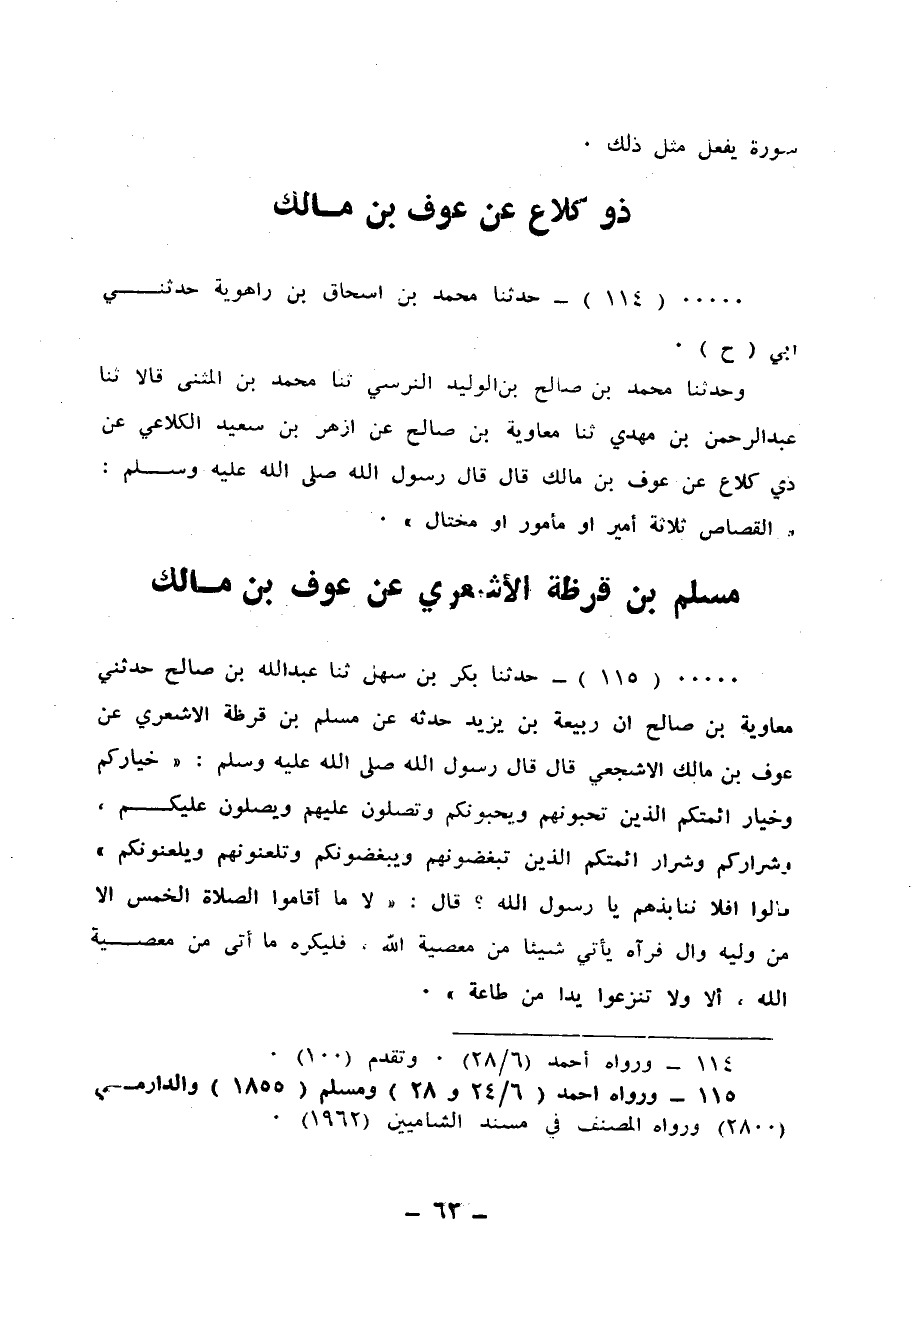 سورة يفعل مثل ذلك ٠
ذو كلاع عن عوف بن مـالك
٠٠٠٠٠ ( ١١٤ ) ـ حدثنا محمد بن اسحاق بن راهوية حدثنـــي
ابي ( ح ) ٠
وحدثنا محمد بن صالح بن الوليد النرسي ثنا محمد بن المثنى قالا ثنا
عبدالرحمن بن مهدي ثنا معاوية بن صالح عن ازهر بن سعيد الكلاعي عن
ذي كلاع عن عوف بن مالك قال قال رسول الله صلى الله عليه وســلم :
« القصاص ثلاثة أمير او مأمور او مختال » ٠
مسلم بن قرظة الأشعري عن عوف بن مـالك
٠٠٠٠٠ ( ١١٥ ) ـ حدثنا بكر بن سهل ثنا عبدالله بن صالح حدثني
معاوية بن صالح ان ربيعة بن يزيد حدثه عن مسلم بن قرظة الاشعري عن
عوف بن مالك الاشجعي قال قال رسول الله صلى الله عليه وسلم : « خياركم
وخيار ائمتكم الذين تحبونهم ويحبونكم وتصلون عليهم ويصلون عليكـــم ،
وشراركم وشرار ائمتكم الذين تبغضونهم ويبغضونكم وتلعنونهم ويلعنونكم »
قالوا افلا ننابذهم يا رسول الله ؟ قال : « لا ما أقاموا الصلاة الخمس الا
من وليه وال فرآه يأتي شيئا من معصية الله ، فليكره ما أتى من معصـــية
الله ، ألا ولا تنزعوا يدا من طاعة » ٠
١١٤ ـ ورواه أحمد (٢٨/٦) ٠ وتقدم (١٠٠) ٠
١١٥ ـ ورواه احمد ( ٢٤/٦ و ٢٨ ) ومسلم ( ١٨٥٥ ) والدارمــي
(٢٨٠٠) ورواه المصنف في مسند الشاميين (١٩٦٢) ٠
ـ ٦٣ ـ